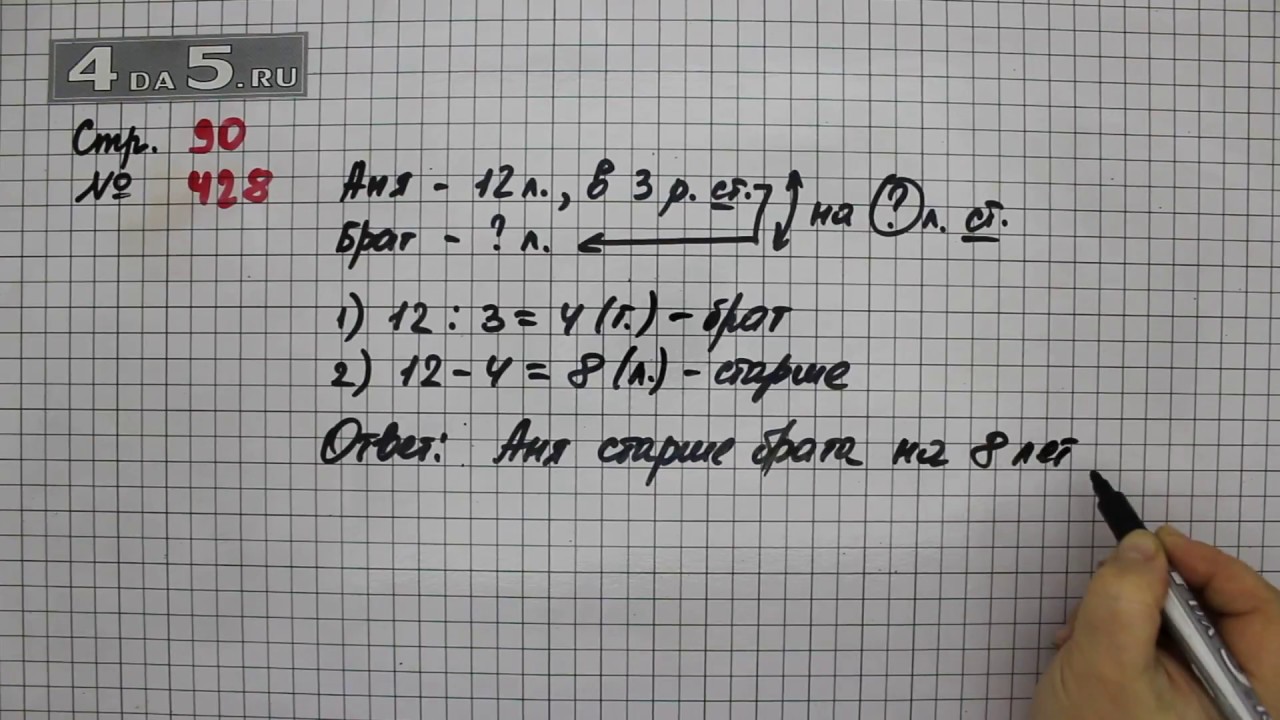 4 DA 5.RU
Стр. 90
№ 428
Аня - 12 л., в 3 р. ст. на ? л. ст.
Брат - ? л.
1) 12 : 3 = 4 (г.) - брат
2) 12 - 4 = 8 (л.) - старше
Ответ: Аня старше брата на 8 лет